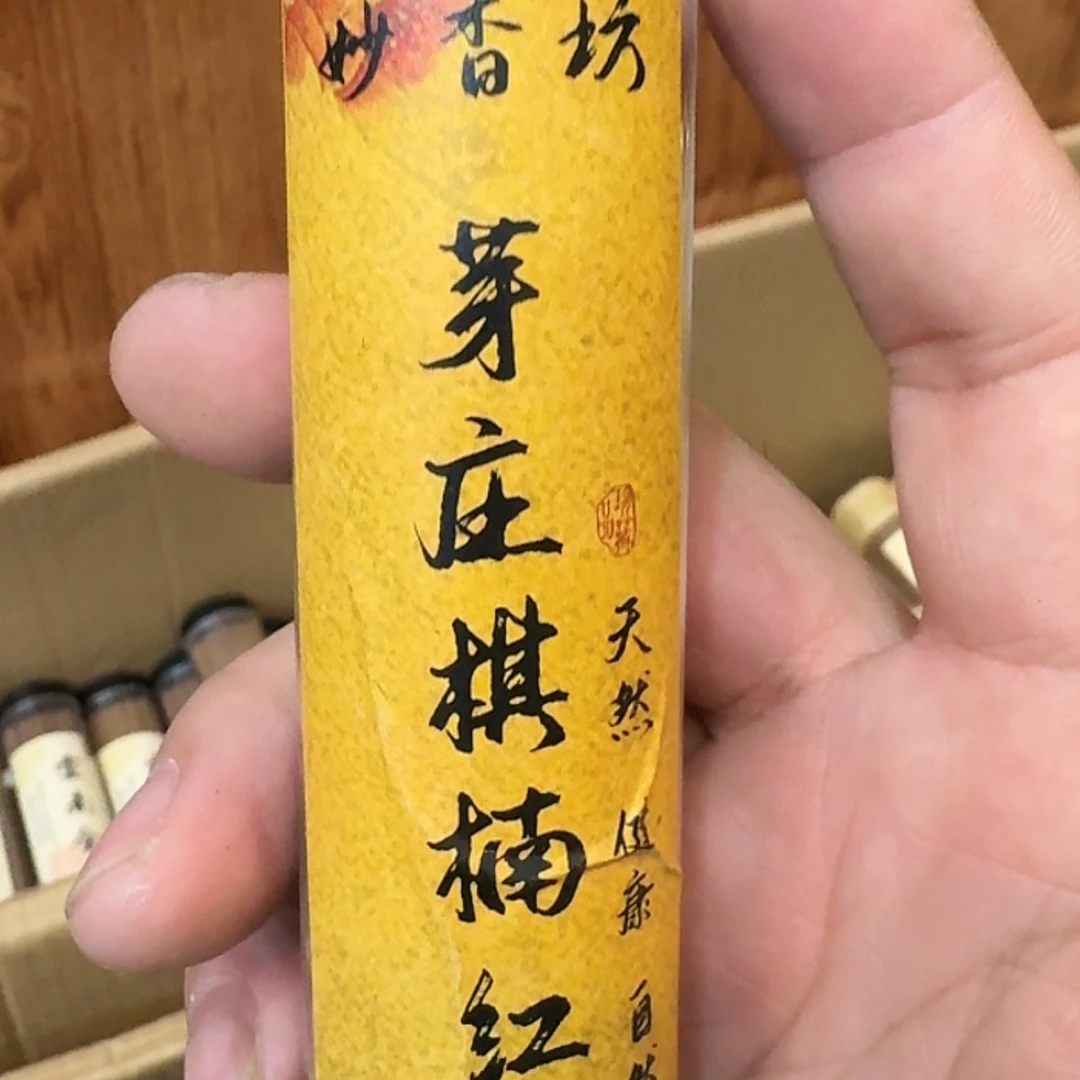 妙香坊
芽庄棋楠红
天然 健康 自然